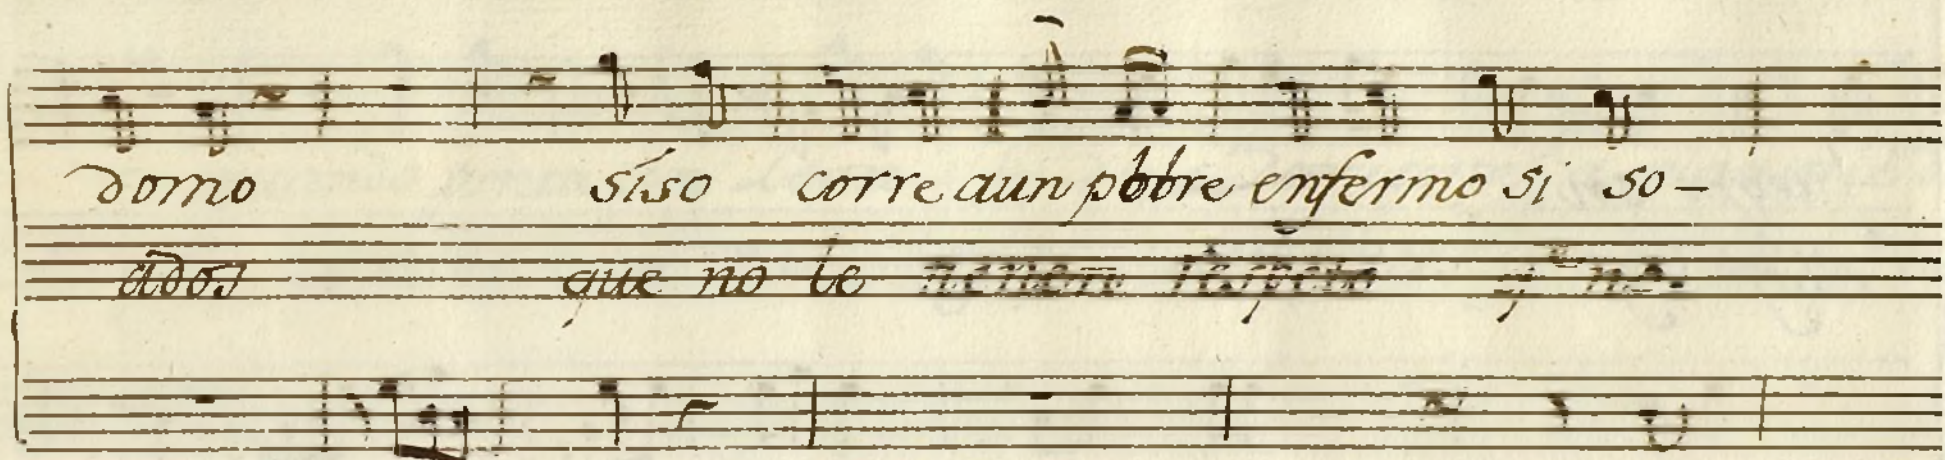 domo siso corre aun pobre enfermo si so-
ados que no le tienen respeto q.e no